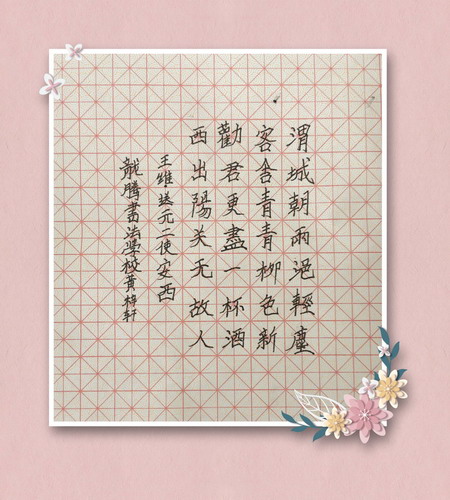 渭城朝雨浥輕塵
客舍青青柳色新
勸君更盡一杯酒
西出陽关无故人
王維送元二使安西
龍腾書法學校黄梓轩